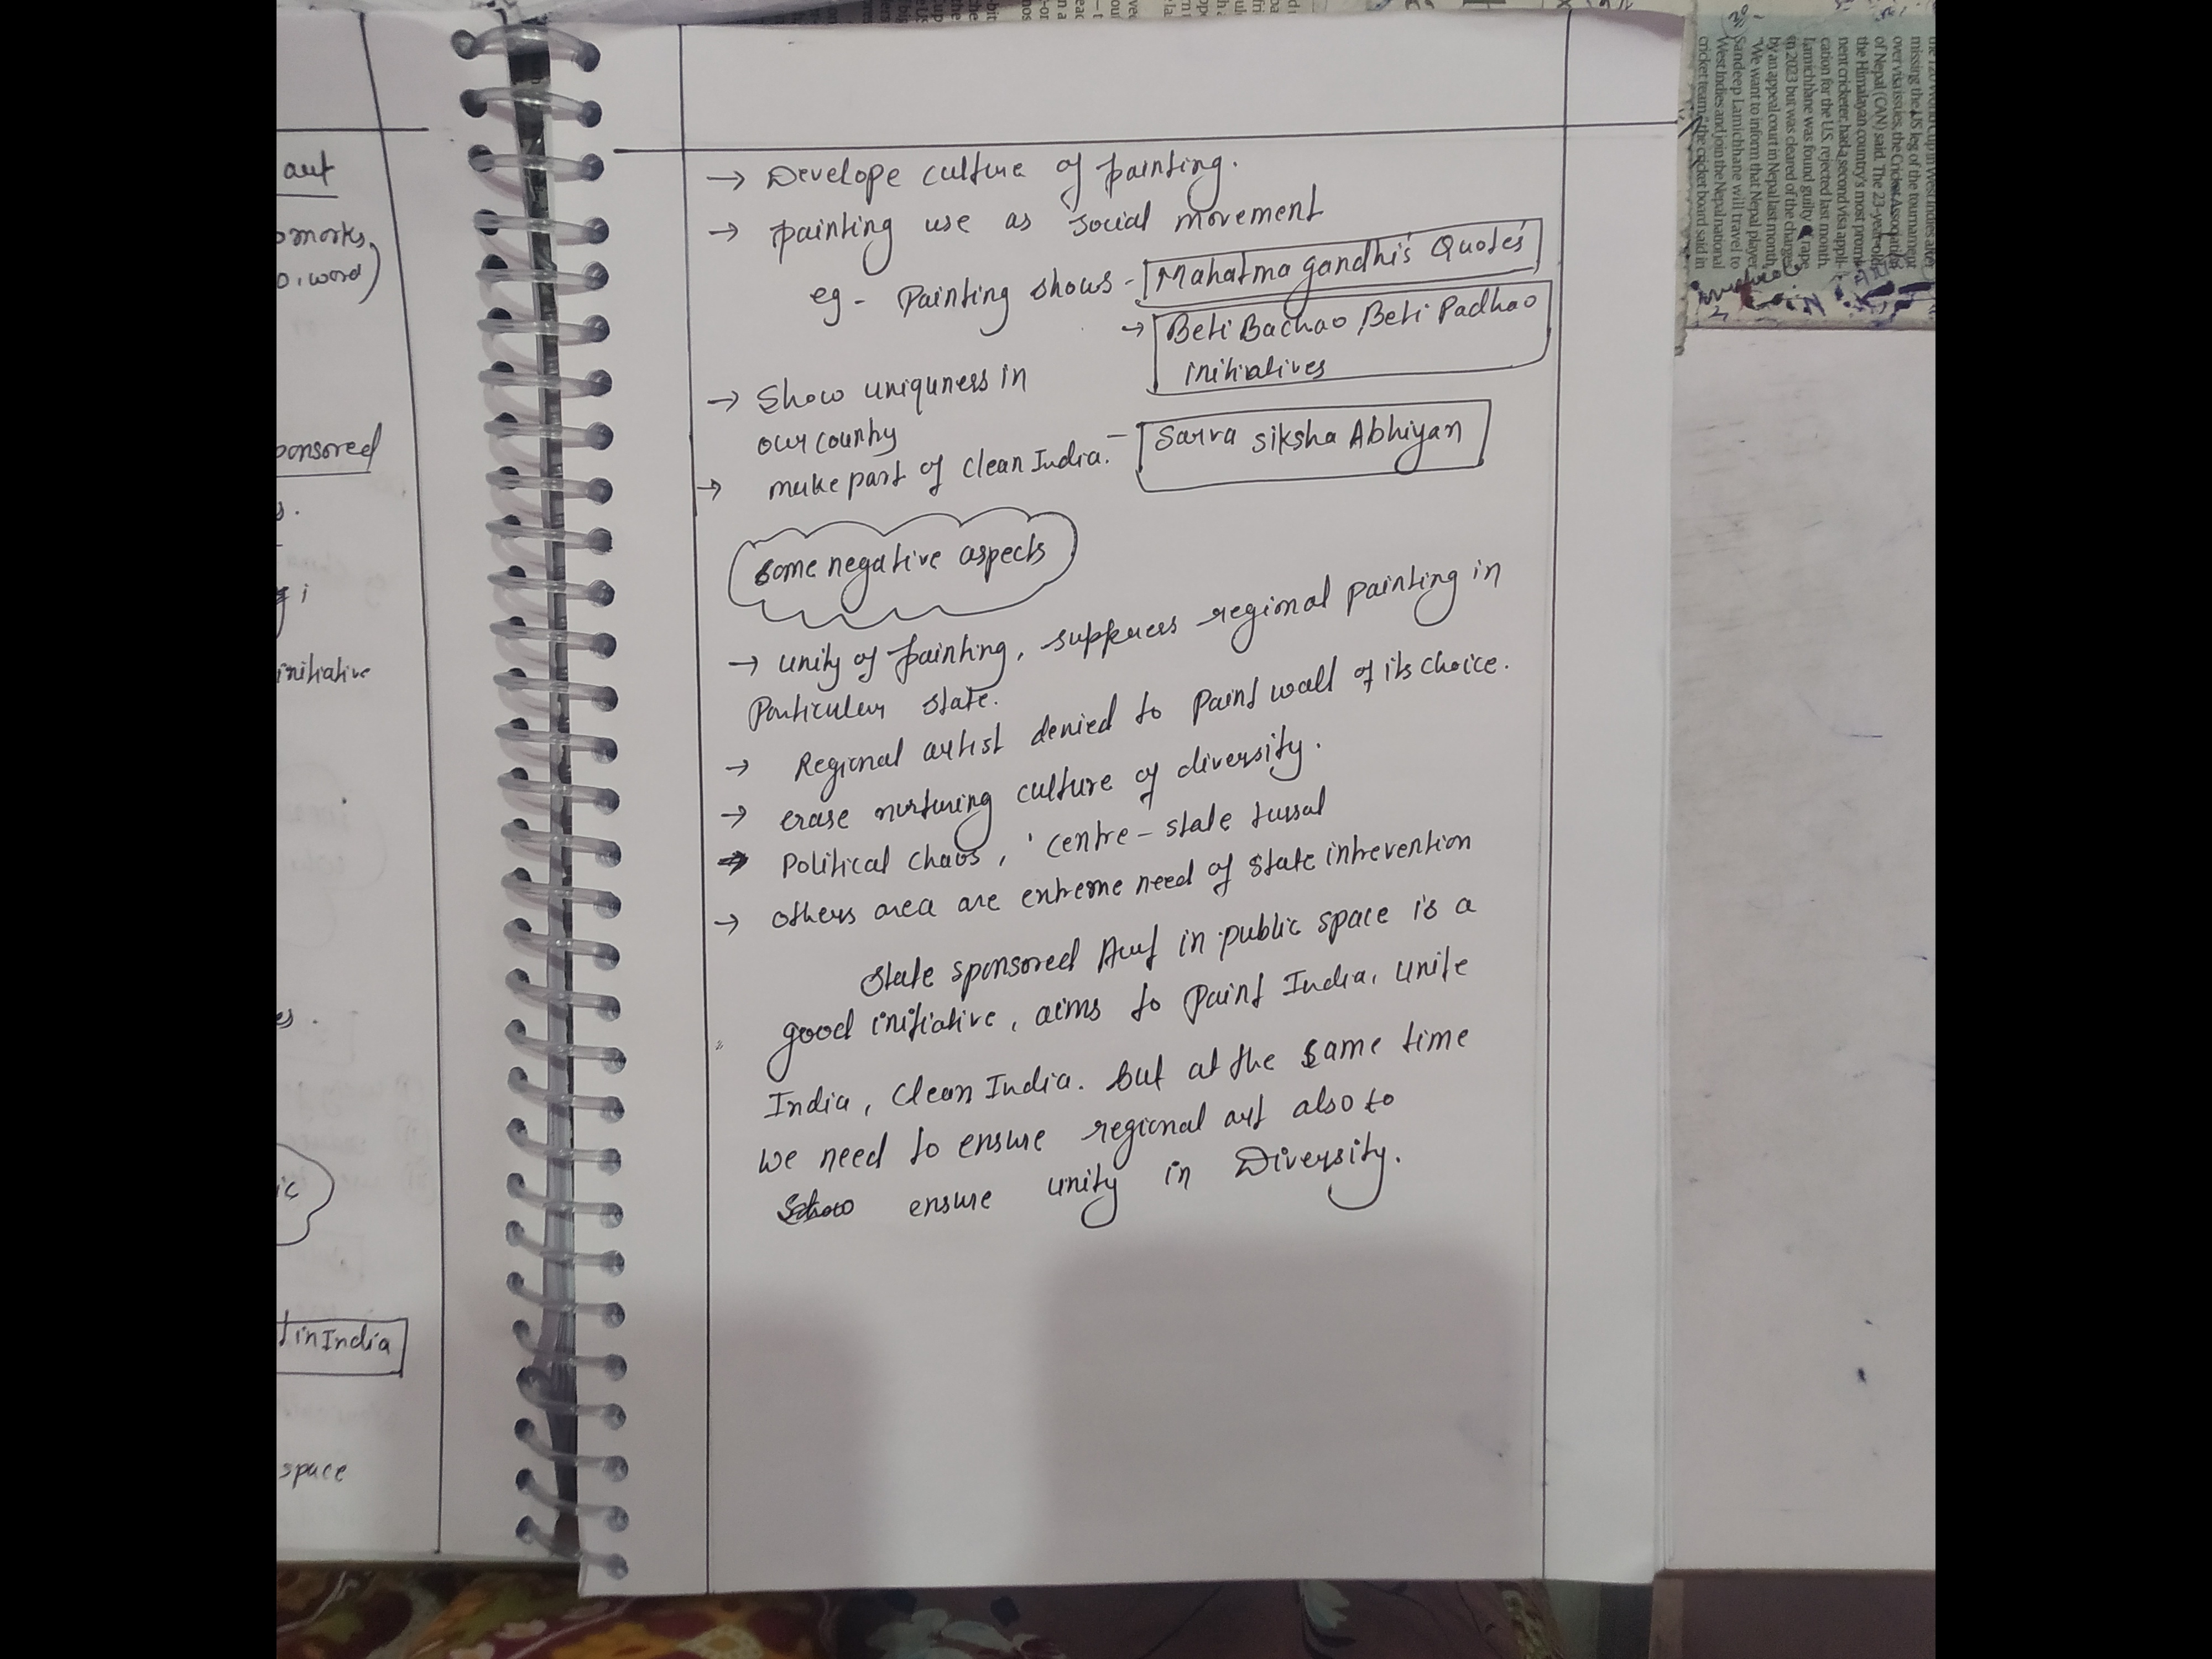 art
marks,
, word)
ponsored
s.
initiative
es.
ic
t in India
space
→ Develope culture of painting.
→ painting use as social movement
eg - Painting shows - Mahatma gandhi's Quotes
→ Beti Bachao, Beti Padhao
initiatives
→ Show uniquness in
our country
→ make part of Clean India. - Sarva siksha Abhiyan
some negative aspects
→ unity of painting, suppress regional painting in
Particular state.
→ Regional artist denied to paint wall of its choice.
→ erase nurturing culture of diversity.
→ Political chaos, centre-state tussal
→ others area are extreme need of state intrevention
State sponsored Art in public space is a
good initiative, aims to Paint India, Unite
India, Clean India. but at the same time
we need to ensure regional art also to
ensure unity in Diversity.
the T20 World Cup in West Indies after
missing the US leg of the tournament
over visa issues, the Cricket Association
of Nepal (CAN) said. The 23-year-old,
the Himalayan country's most promi-
nent cricketer, had a second visa appli-
cation for the U.S. rejected last month.
Lamichhane was found guilty of rape
in 2023 but was cleared of the charges
by an appeal court in Nepal last month.
"We want to inform that Nepal player
Sandeep Lamichhane will travel to
West Indies and join the Nepal national
cricket team," the cricket board said in